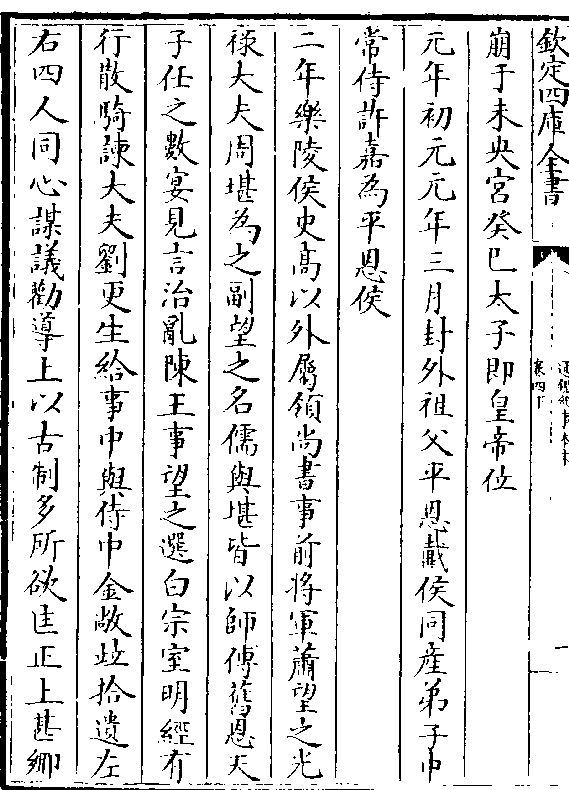 欽定四庫全書
卷四下
崩于未央宮癸巳太子即皇帝位
元年初元元年三月封外祖父平恩戴侯同産弟子中
常侍許嘉為平恩侯
二年樂陵侯史高以外屬領尚書事前將軍蕭望之光
祿大夫周堪為之副望之名儒與堪皆以師傅舊恩天
子任之數宴見言治亂陳王事望之選白宗室明經有
行散騎諫大夫劉更生給事中與侍中金敞並拾遺左
右四人同心謀議勸導上以古制多所欲匡正上甚鄉